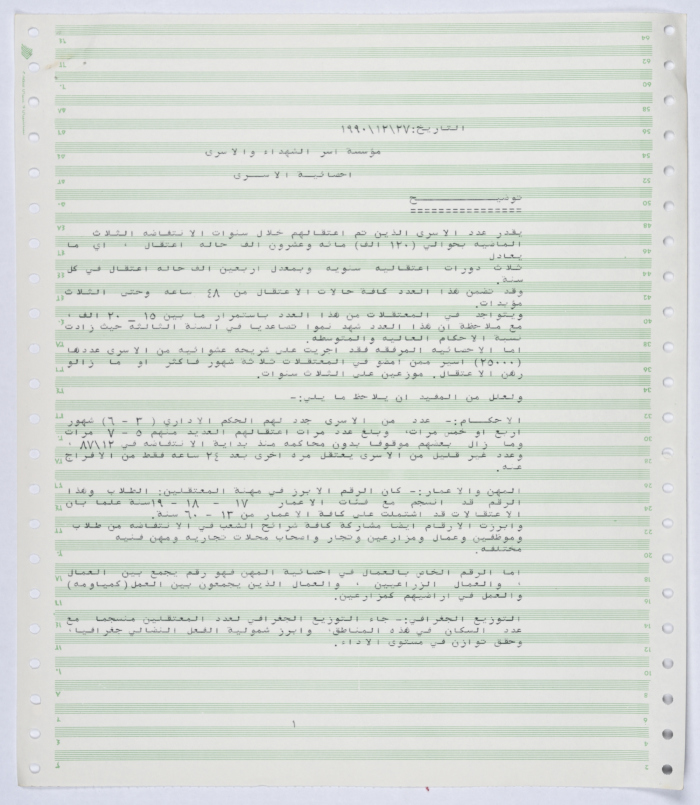 التاريخ:١٩٩٠\١٢\٢٧
مؤسسة اسر الشهداء والاسرى
احصائية الاسرى
توضيح
==============
يقدر عدد الاسرى الذين تم اعتقالهم خلال سنوات الانتفاضه الثلاث
الماضيه بحوالي (١٢٠ الف) مائه وعشرون الف حاله اعتقال ، اي ما
يعادل
ثلاث دورات اعتقاليه سنويه وبمعدل اربعين الف حاله اعتقال في كل
سنة.
وقد تضمن هذا العدد كافة حالات الاعتقال من ٤٨ ساعه وحتى الثلاث
مؤبدات.
ويتواجد في المعتقلات من هذا العدد باستمرار ما بين ١٥ - ٢٠ الف،
مع ملاحظة ان هذا العدد شهد نموا تصاعديا في السنة الثالثه حيث زادت
نسبة الاحكام العاليه والمتوسطه.
اما الاحصائيه المرفقه فقد اجريت على شريحه عشوائيه من الاسرى عددها
(٢٥٠٠٠) اسير ممن امضو في المعتقلات ثلاثة شهور فاكثر او ما زالو
رهن الاعتقال. موزعين على الثلاث سنوات.
ولعل من المفيد ان يلاحظ ما يلي:-
الاحكام:- عدد من الاسرى جدد لهم الحكم الاداري (٣ - ٦) شهور
اربع او خمس مرات، وبلغ عدد مرات اعتقالهم العديد منهم ٥ - ٧ مرات
وما زال بعضهم موقوفا بدون محاكمه منذ بداية الانتفاضه في ٨٧\١٢ ،
وعدد غير قليل من الاسرى يعتقل مره اخرى بعد ٢٤ ساعه فقط من الافراج
عنه.
المهن والاعمار:- كان الرقم الابرز في مهنة المعتقلين: الطلاب وهذا
الرقم قد انسجم مع فئات الاعمار ١٧ - ١٨ - ١٩سنة علما بان
الاعتقالات قد اشتملت على كافة الاعمار من ١٣ - ٦٠ سنة.
وابرزت الارقام ايضا مشاركة كافة شرائح الشعب في الانتفاضه من طلاب
وموظفين وعمال ومزارعين وتجار واصحاب محلات تجاريه ومهن فنيه
مختلفه.
اما الرقم الخاص بالعمال في احصائية المهن فهو رقم يجمع بين العمال
، والعمال الزراعيين ، والعمال الذين يجمعون بين العمل(كمياومه)
والعمل في اراضيهم كمزارعين.
التوزيع الجغرافي:- جاء التوزيع الجغرافي لعدد المعتقلين منسجما مع
عدد السكان في هذه المناطق، وابرز شمولية الفعل النضالي جغرافيا،
وحقق توازن في مستوى الاداء.
١